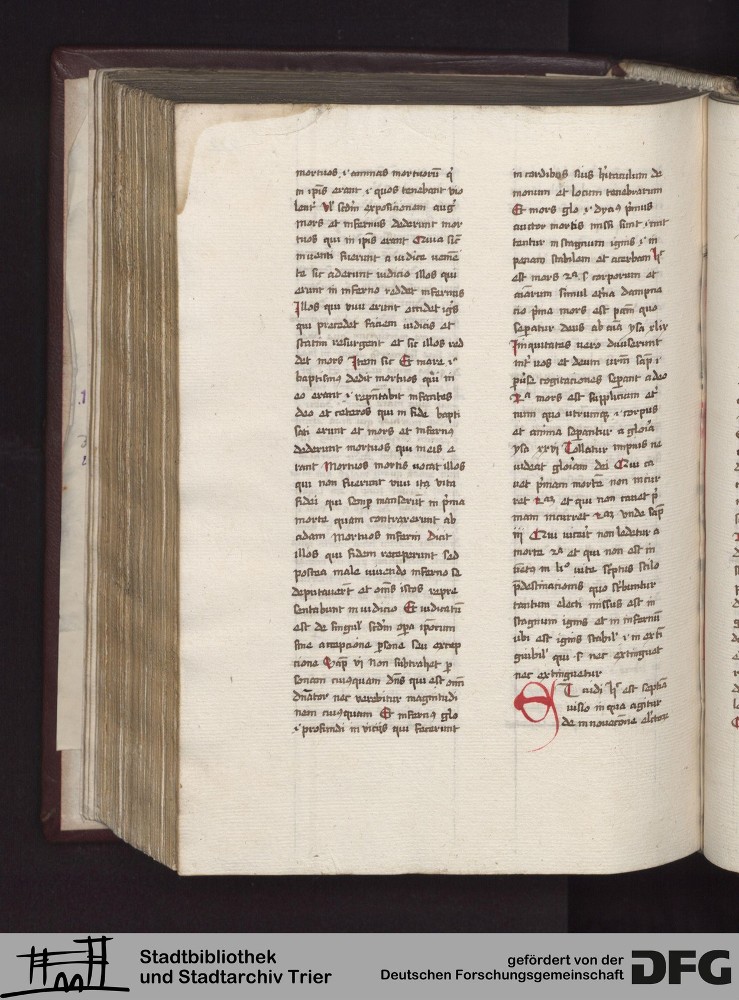 mortuos .i. animas mortuorū q̄
in ip̄is erant .i. quos tenebant vio
lent᷑ Vl̓ scd̓m exposicionem aug᷑
mors et infernus dederunt mor
tuos qui in ip̄is erant Quia sic̄
inuenti fuerunt a iudice ueniē
te sic aderunt iudicio illos qui
erunt in inferno reddet infernus
Illos qui viui erunt occidet ig̓s
qui precedet faciem iudicis et
statim resurgent et sic illos red
det mors Item sic Et mare .i.
baptismus dedit mortuos qui in
eo erant .i. rep̄ntabit infantes
deo et ceteros qui in fide bapti
sati erunt et mors et infernꝯ
dederunt mortuos qui in eis e
rant Mortuos mortis uocat illos
qui non fuerunt viui ita vita
fidei qui semp manserūt in p̓ma
morte quam contraxerunt ab
adam Mortuos inferni dicit
illos qui fidem receperunt sed
postea male uiuendo inferno se
deputauer̄t et om̄s istos repre
sentabunt in iudicio Et iudicatū
est de singul᷑ scd̓m op̄a ip̄orum
sine accepcione p̄sone seu excep
cione Sap̄ vi non subtrahet p̄
sonam cuiusquam dn̄s qui est om̄
dn̄ator nec verebitur magnitudi
nem cuiꝯquam Et infernꝯ glo
.i. profundi in viciis qui fecerunt
in cordibus suis h̓itaculum de
monum et locum tenebrarum
Et mors glo .i. dya9 p̓mus
auctor mortis missi sunt .i. mit
tentur in stagnum ignis .i. in
penam stabilem et acerbam h̓
est mors 2ᵃ .s. corporum et
aīarum simul et̓na dampna
cio p̓ma mors est p̄cm̄ quo
separatur deus ab aīa ysa᷑ xlix
Iniquitates uero diuiserunt
int̓ uos et deum urm̄ sap̄ .i.
p̓use cogitaciones sep̄ant a deo
2ᵃ mors est supplicium et̓
num quo utrumqꝫ .s. corpus
et anima sep̄antur a gloīa
ysa xxvi Tollatur impius ne
uideat gloīam dei Qui ca
uet p̓mam mortē non incur
ret 2aꝫ et qui non cauet p̓
mam incurret 2aꝫ vnde sap̄
iii Qui uicīt non ledetur a
morte 2ᵃ et qui non est in
uētꝯ in li̊ vite sc̓ptus stilo
p̄destinacionis quo sc̓buntur
tantum electi missus est in
stagnum ignis et in infernū
ubi est ignis stabil᷑ .i. inexti
guibil᷑ qui .s. nec extinguet
nec extinguetur
ET uidi h̓ est septīa
visio in qua agitur
de innouacōne el̓ctorꝝ
Stadtbibliothek
und Stadtarchiv Trier
gefördert von der
Deutschen Forschungsgemeinschaft
DFG